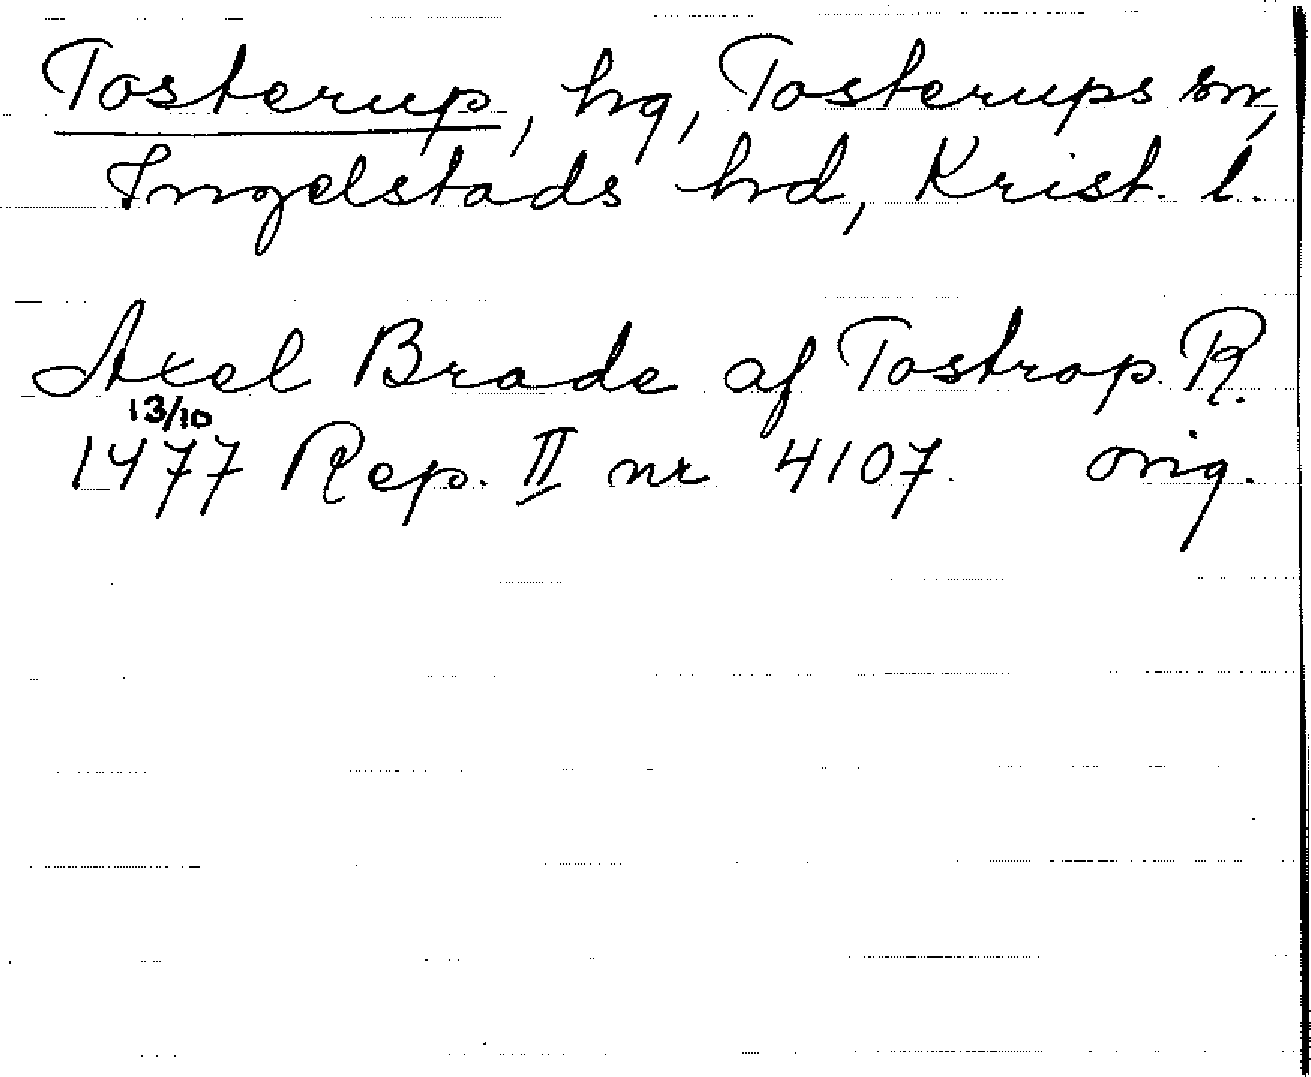 Tosterup, hg, Tosterups sn,
Ingelstads hd, Krist. l.
Axel Brade af Tostrop R.
13/10
1477 Rep. II nr 4107. orig.